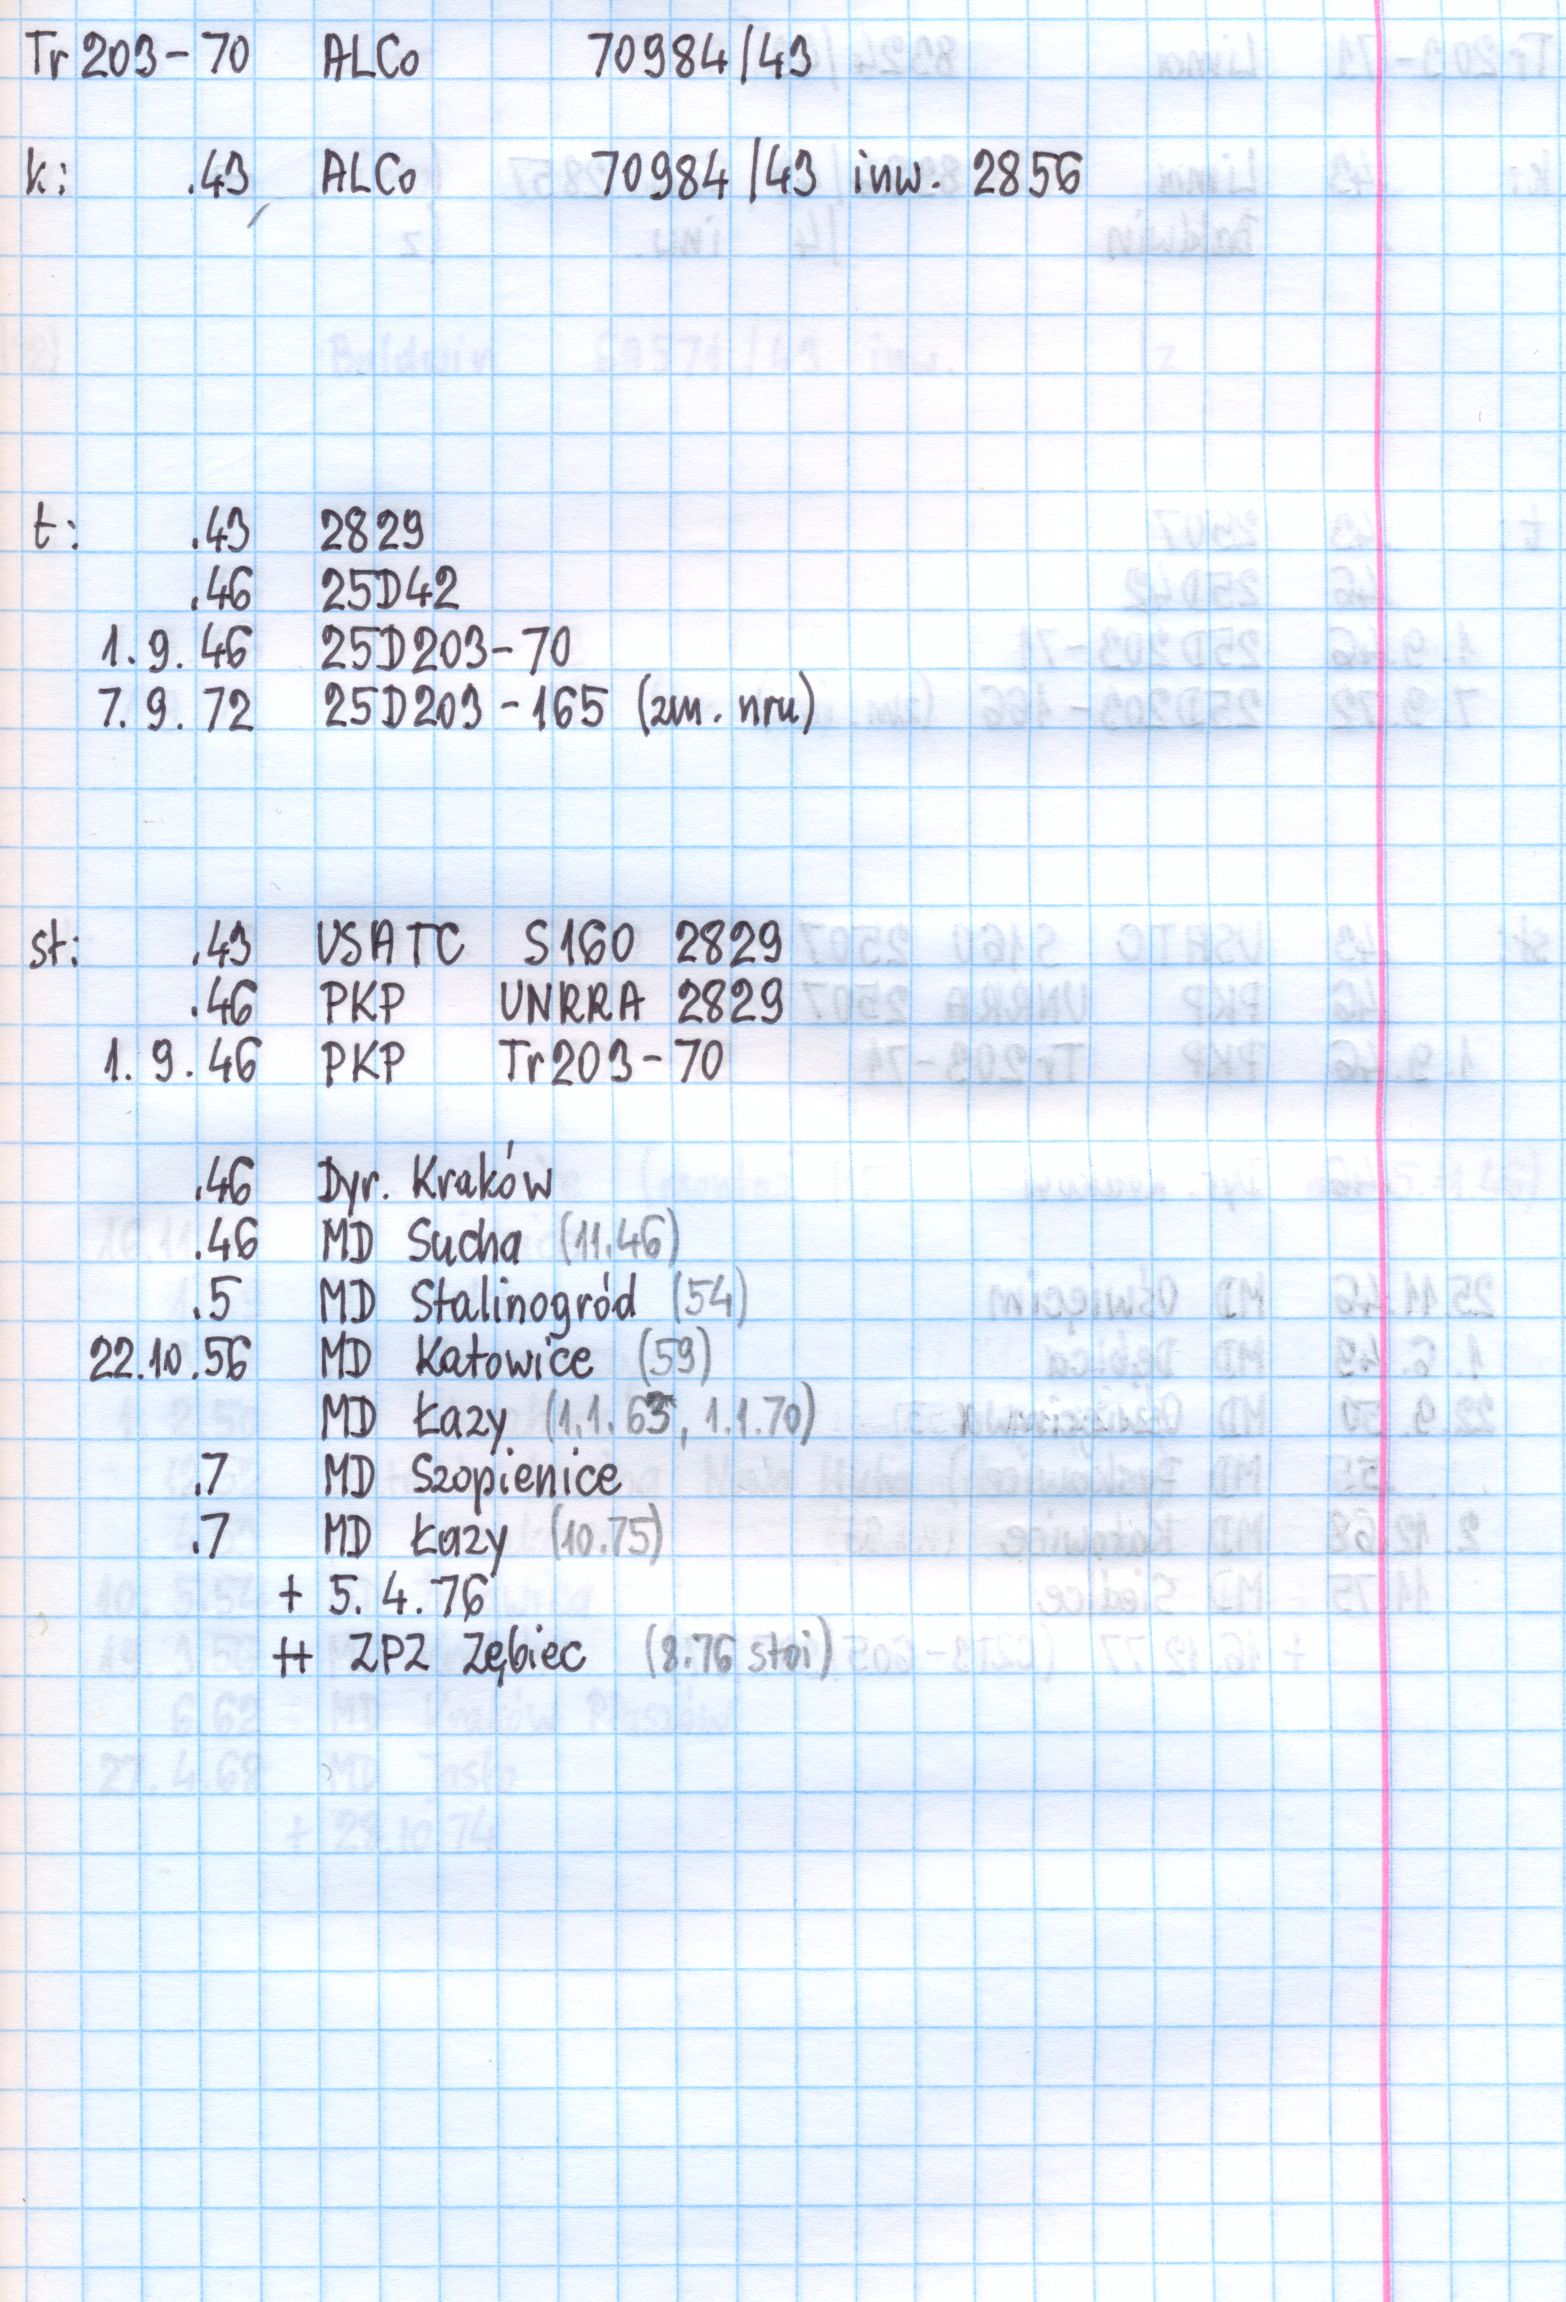 Tr203-70 ALCo 70984/43
k: .43 ALCo 70984/43 inw. 2856
t: .43 2829
.46 25D42
1.9.46 25D203-70
7.9.72 25D203-165 (zm. nru)
st: .43 USATC S160 2829
.46 PKP UNRRA 2829
1.9.46 PKP Tr203-70
.46 Dyr. Kraków
.46 MD Sucha (11.46)
.5 MD Stalinogród (54)
22.10.56 MD Katowice (59)
MD Łazy (1.1.63, 1.1.70)
.7 MD Szopienice
.7 MD Łazy (10.75)
+ 5.4.76
++ ZPZ Zębiec (8.76 stoi)